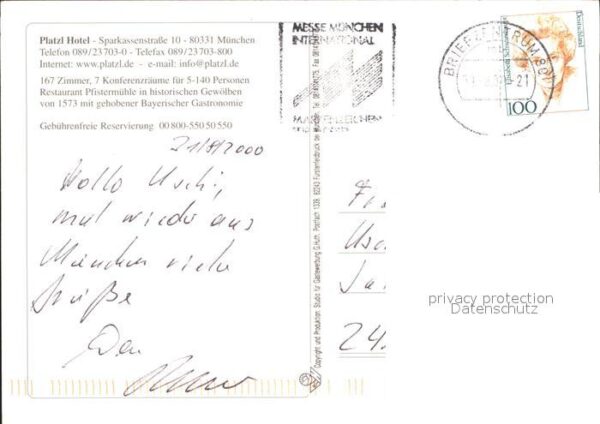 Platzl Hotel - Sparkassenstraße 10 - 80331 München
Telefon 089/23703-0 - Telefax 089/23703-800
Internet: www.platzl.de - e-mail: info@platzl.de
167 Zimmer, 7 Konferenzräume für 5-140 Personen
Restaurant Pfistermühle in historischen Gewölben
von 1573 mit gehobener Bayerischer Gastronomie
Gebührenfreie Reservierung 00800-55050550
21/8/2000
Hallo Uschi,
mal wieder aus
München viele
Grüße
MESSE MÜNCHEN
INTERNATIONAL
Copyright und Produktion: Studio für Gastewerbung G.Huth, Postfach 1338, 82243 Fürstenfeldbruck
BRIEFZENTRUM 80
21
Deutschland
100
24
privacy protection
Datenschutz